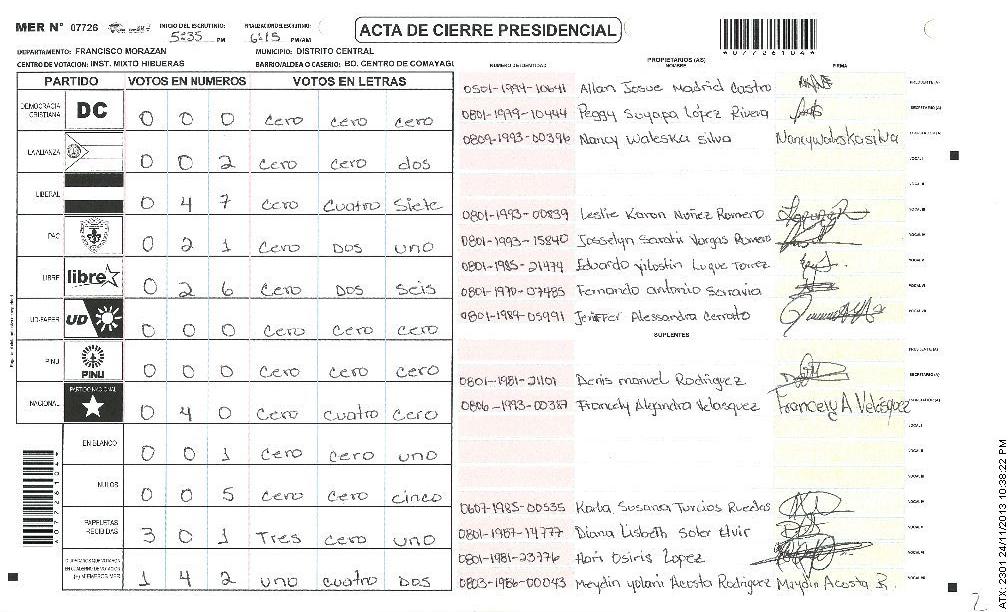 MER N° 07726 INICIO DEL ESCRUTINIO: 5:35 PM FINALIZACION ESCRUTINIO: 6:15 PM/AM
DEPARTAMENTO: FRANCISCO MORAZAN MUNICIPIO: DISTRITO CENTRAL
CENTRO DE VOTACION: INST. MIXTO HIBUERAS BARRIO/ALDEA O CASERIO: BO. CENTRO DE COMAYAGU
PARTIDO VOTOS EN NUMEROS VOTOS EN LETRAS
DEMOCRACIA CRISTIANA DC 0 0 0 cero cero cero
LA ALIANZA 0 0 2 cero cero dos
LIBERAL 0 4 7 cero cuatro siete
PAC 0 2 1 cero Dos uno
LIBRE libre 0 2 6 cero Dos seis
UD-FAPER UD 0 0 0 cero cero cero
PINU PINU 0 0 0 cero cero cero
NACIONAL PARTIDO NACIONAL 0 4 0 cero cuatro cero
EN BLANCO 0 0 1 cero cero uno
NULOS 0 0 5 cero cero cinco
PAPELETAS RECIBIDAS 3 0 1 Tres cero uno
1 4 2 uno cuatro Dos
ACTA DE CIERRE PRESIDENCIAL
4077261044
PROPIETARIOS (AS)
NUMERO DE IDENTIDAD NOMBRE FIRMA
0501-1994-10641 Allan Josue Madrid Castro PRESIDENTE(A)
0801-1979-10444 Peggy Suyapa López Rivera SECRETARIO(A)
0809-1993-00396 Nancy Waleska Silva Nancy waleska silva
0801-1993-00839 Leslie Karon Nuñez Romero
0801-1993-15840 Josselyn Sarahi Vargas Romero
0801-1985-21474 Eduardo Luque Torrez
0801-1970-07485 Fernando antonio Sarravia
0801-1989-05991 Jeniffer Alessandra Cerrato
SUPLENTES
0801-1981-21101 Denis manuel Rodriguez
0806-1993-00387 Francely Alejandra Velasquez Francely A Velásquez
0607-1985-00535 Karla Susana Turcios Ruedas
0801-1987-14777 Diana Lisbeth Soler Elvir
0801-1981-23776 Osiris Lopez
0803-1986-00043 Meydin yolani Acosta Rodriguez Meydin Acosta R.
ATX-2301 24/11/2013 10:38:22 PM